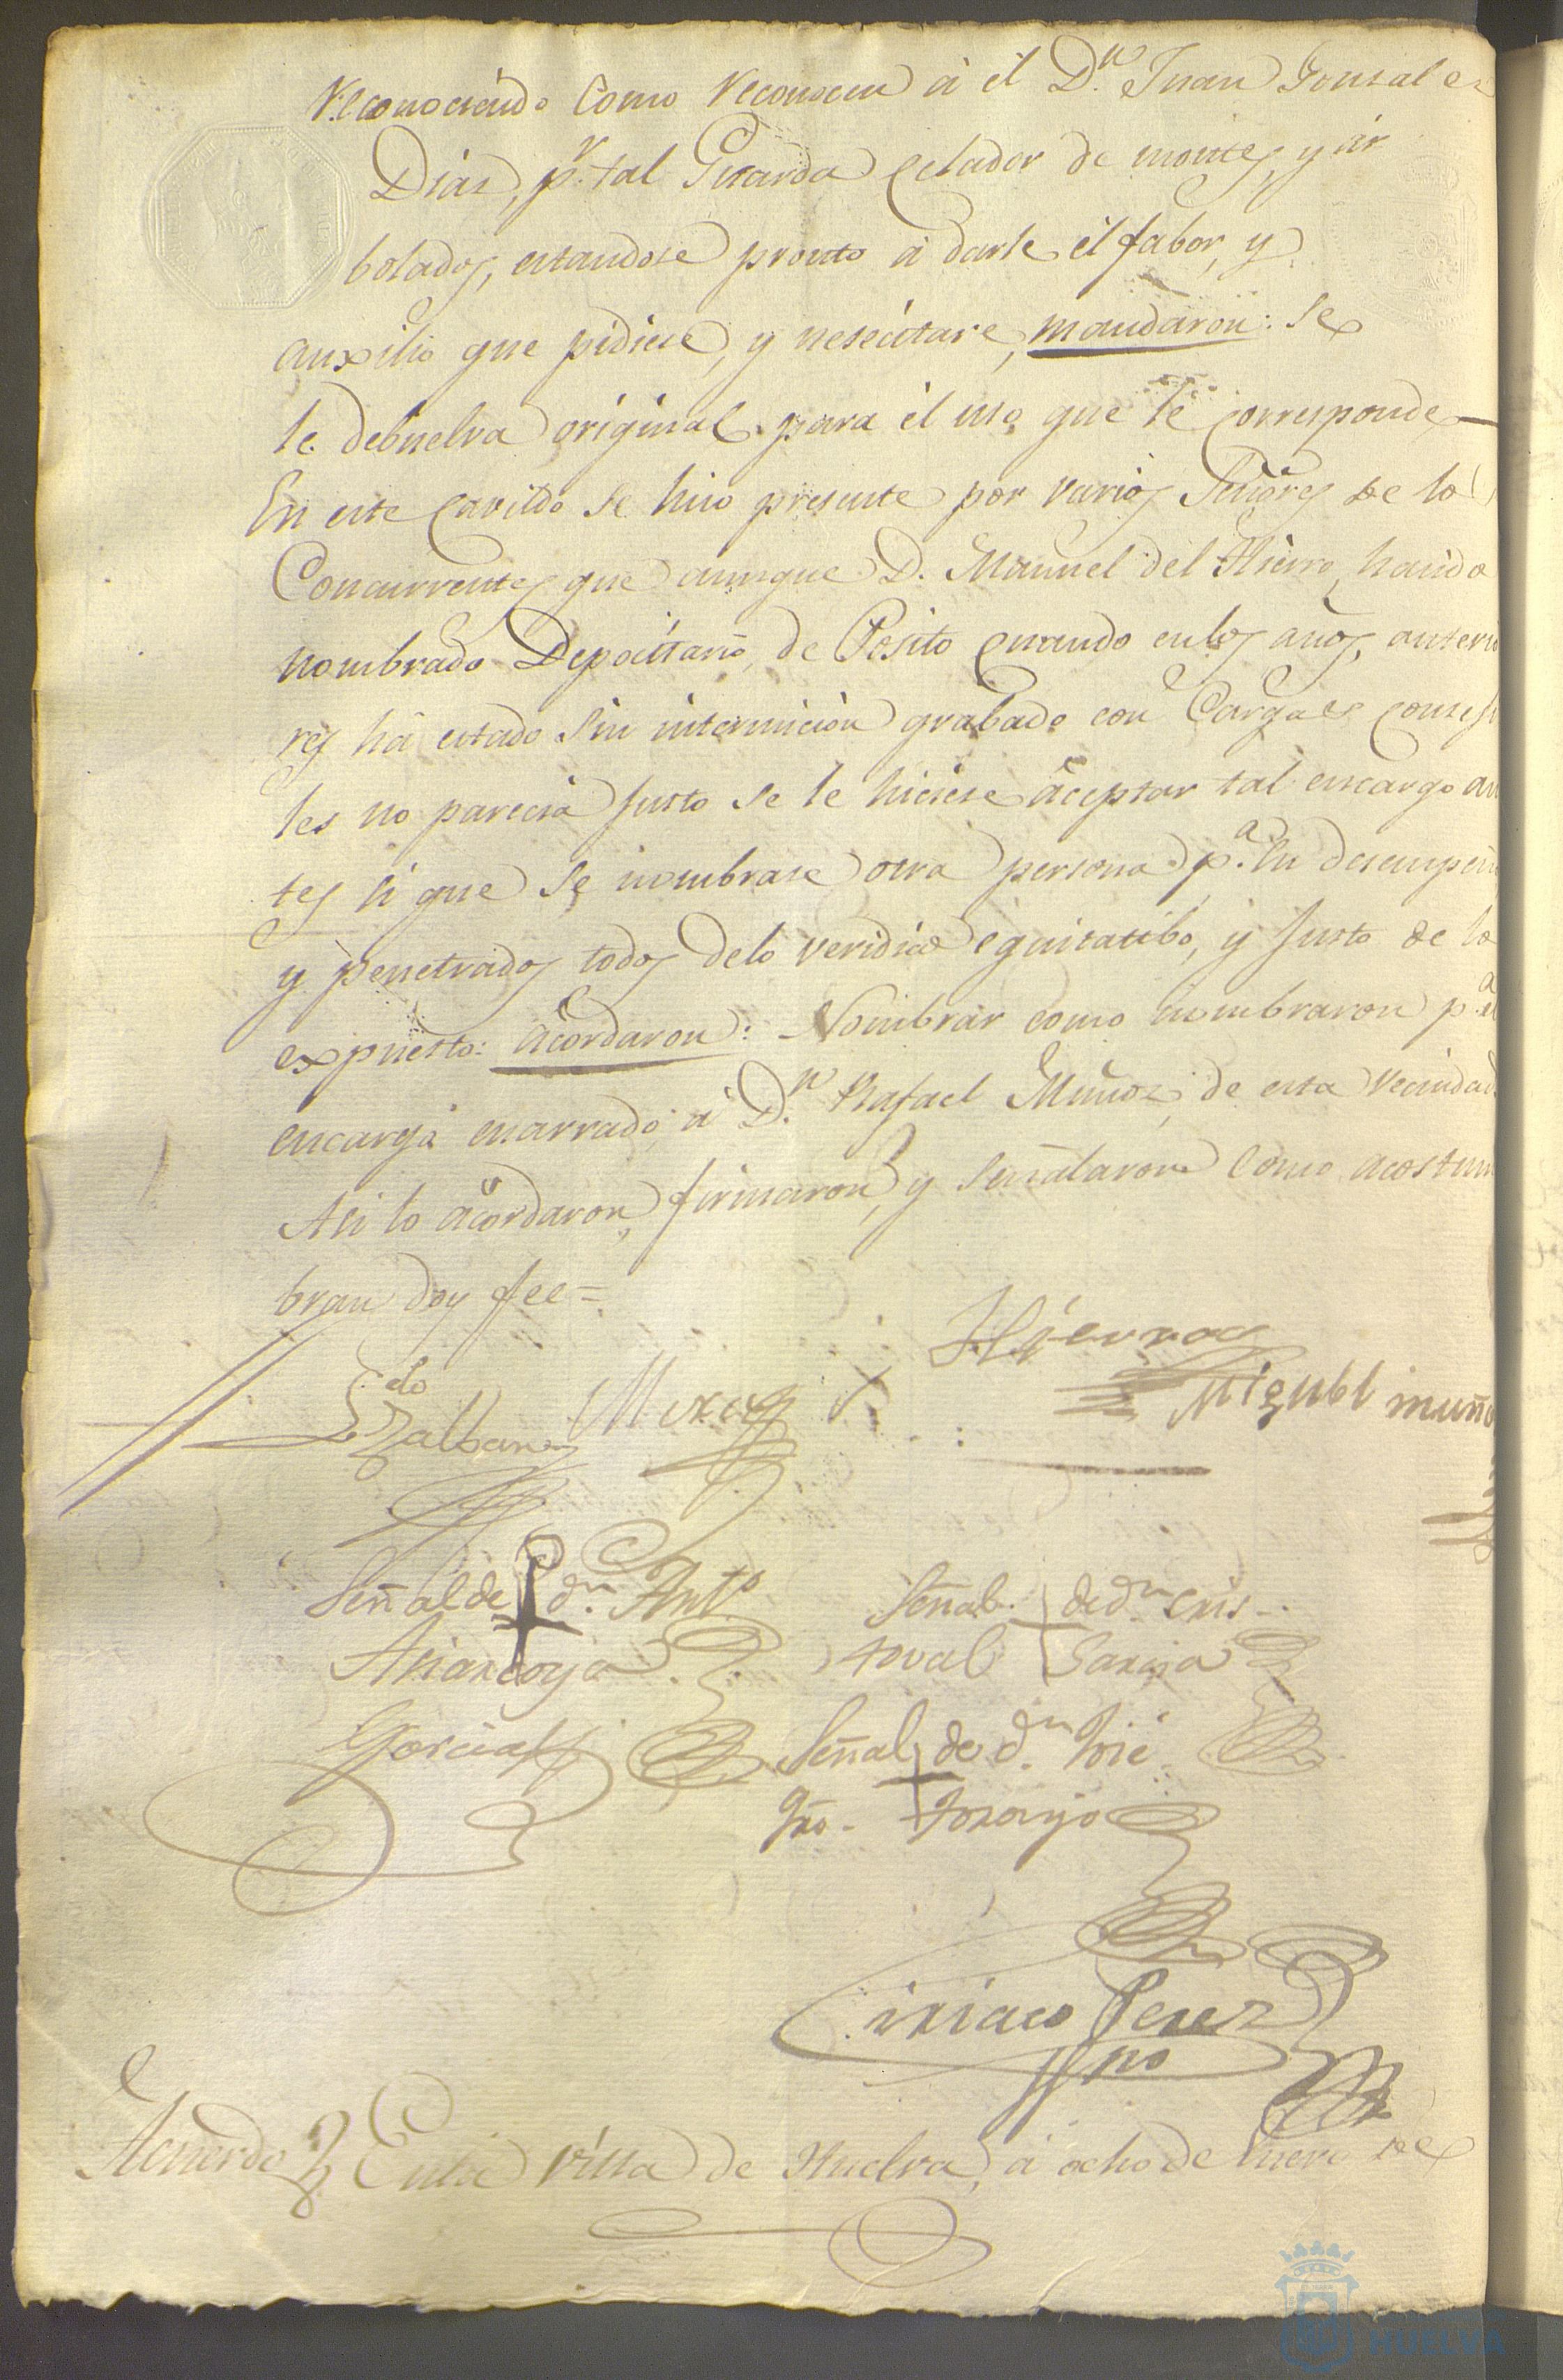 Reconociendo como Reconocen á él D.n Juan Gonsalez
Dias, p.r tal Guarda Celador de montes, y ár
bolados, estandose pronto á darle él fabor, y
auxilio que pidiese, y nesecitare, mandaron: Se
le debuelva original para él uso que le corresponde
En este Cavildo se hiso presente por varios Señores de lo
Concurrentes que aunque D. Manuel del Hierro, haido
nombrado Depocitario, de Posito quando en los años, anterio
res há estado sin intermicion grabado con Cargas conseji
les no parecia justo se le hiciese áceptar tal encargo an
tes si que se nombrase otra persona p.a su desempeño
y penetrados todos delo veridico equitatibo, y justo de lo
expuesto: ácordaron: Nombrar como nombraron p.a el
encargo enarrado, á D.n Rafael Muños, de esta Vecindad
Asi lo ácordaron, firmaron, y señalaron como acostum
bran doy fee=
Hierro
Miguel muño
Señal de d.n Ant.o
Señal de d.n Cris-
toval Garcia
Garcia
Señal de d.n José
Gro- Araujo
Ciriaco Perez
Sno
Acuerdo En la villa de Huelva, á ocho de Enero de
HUELVA